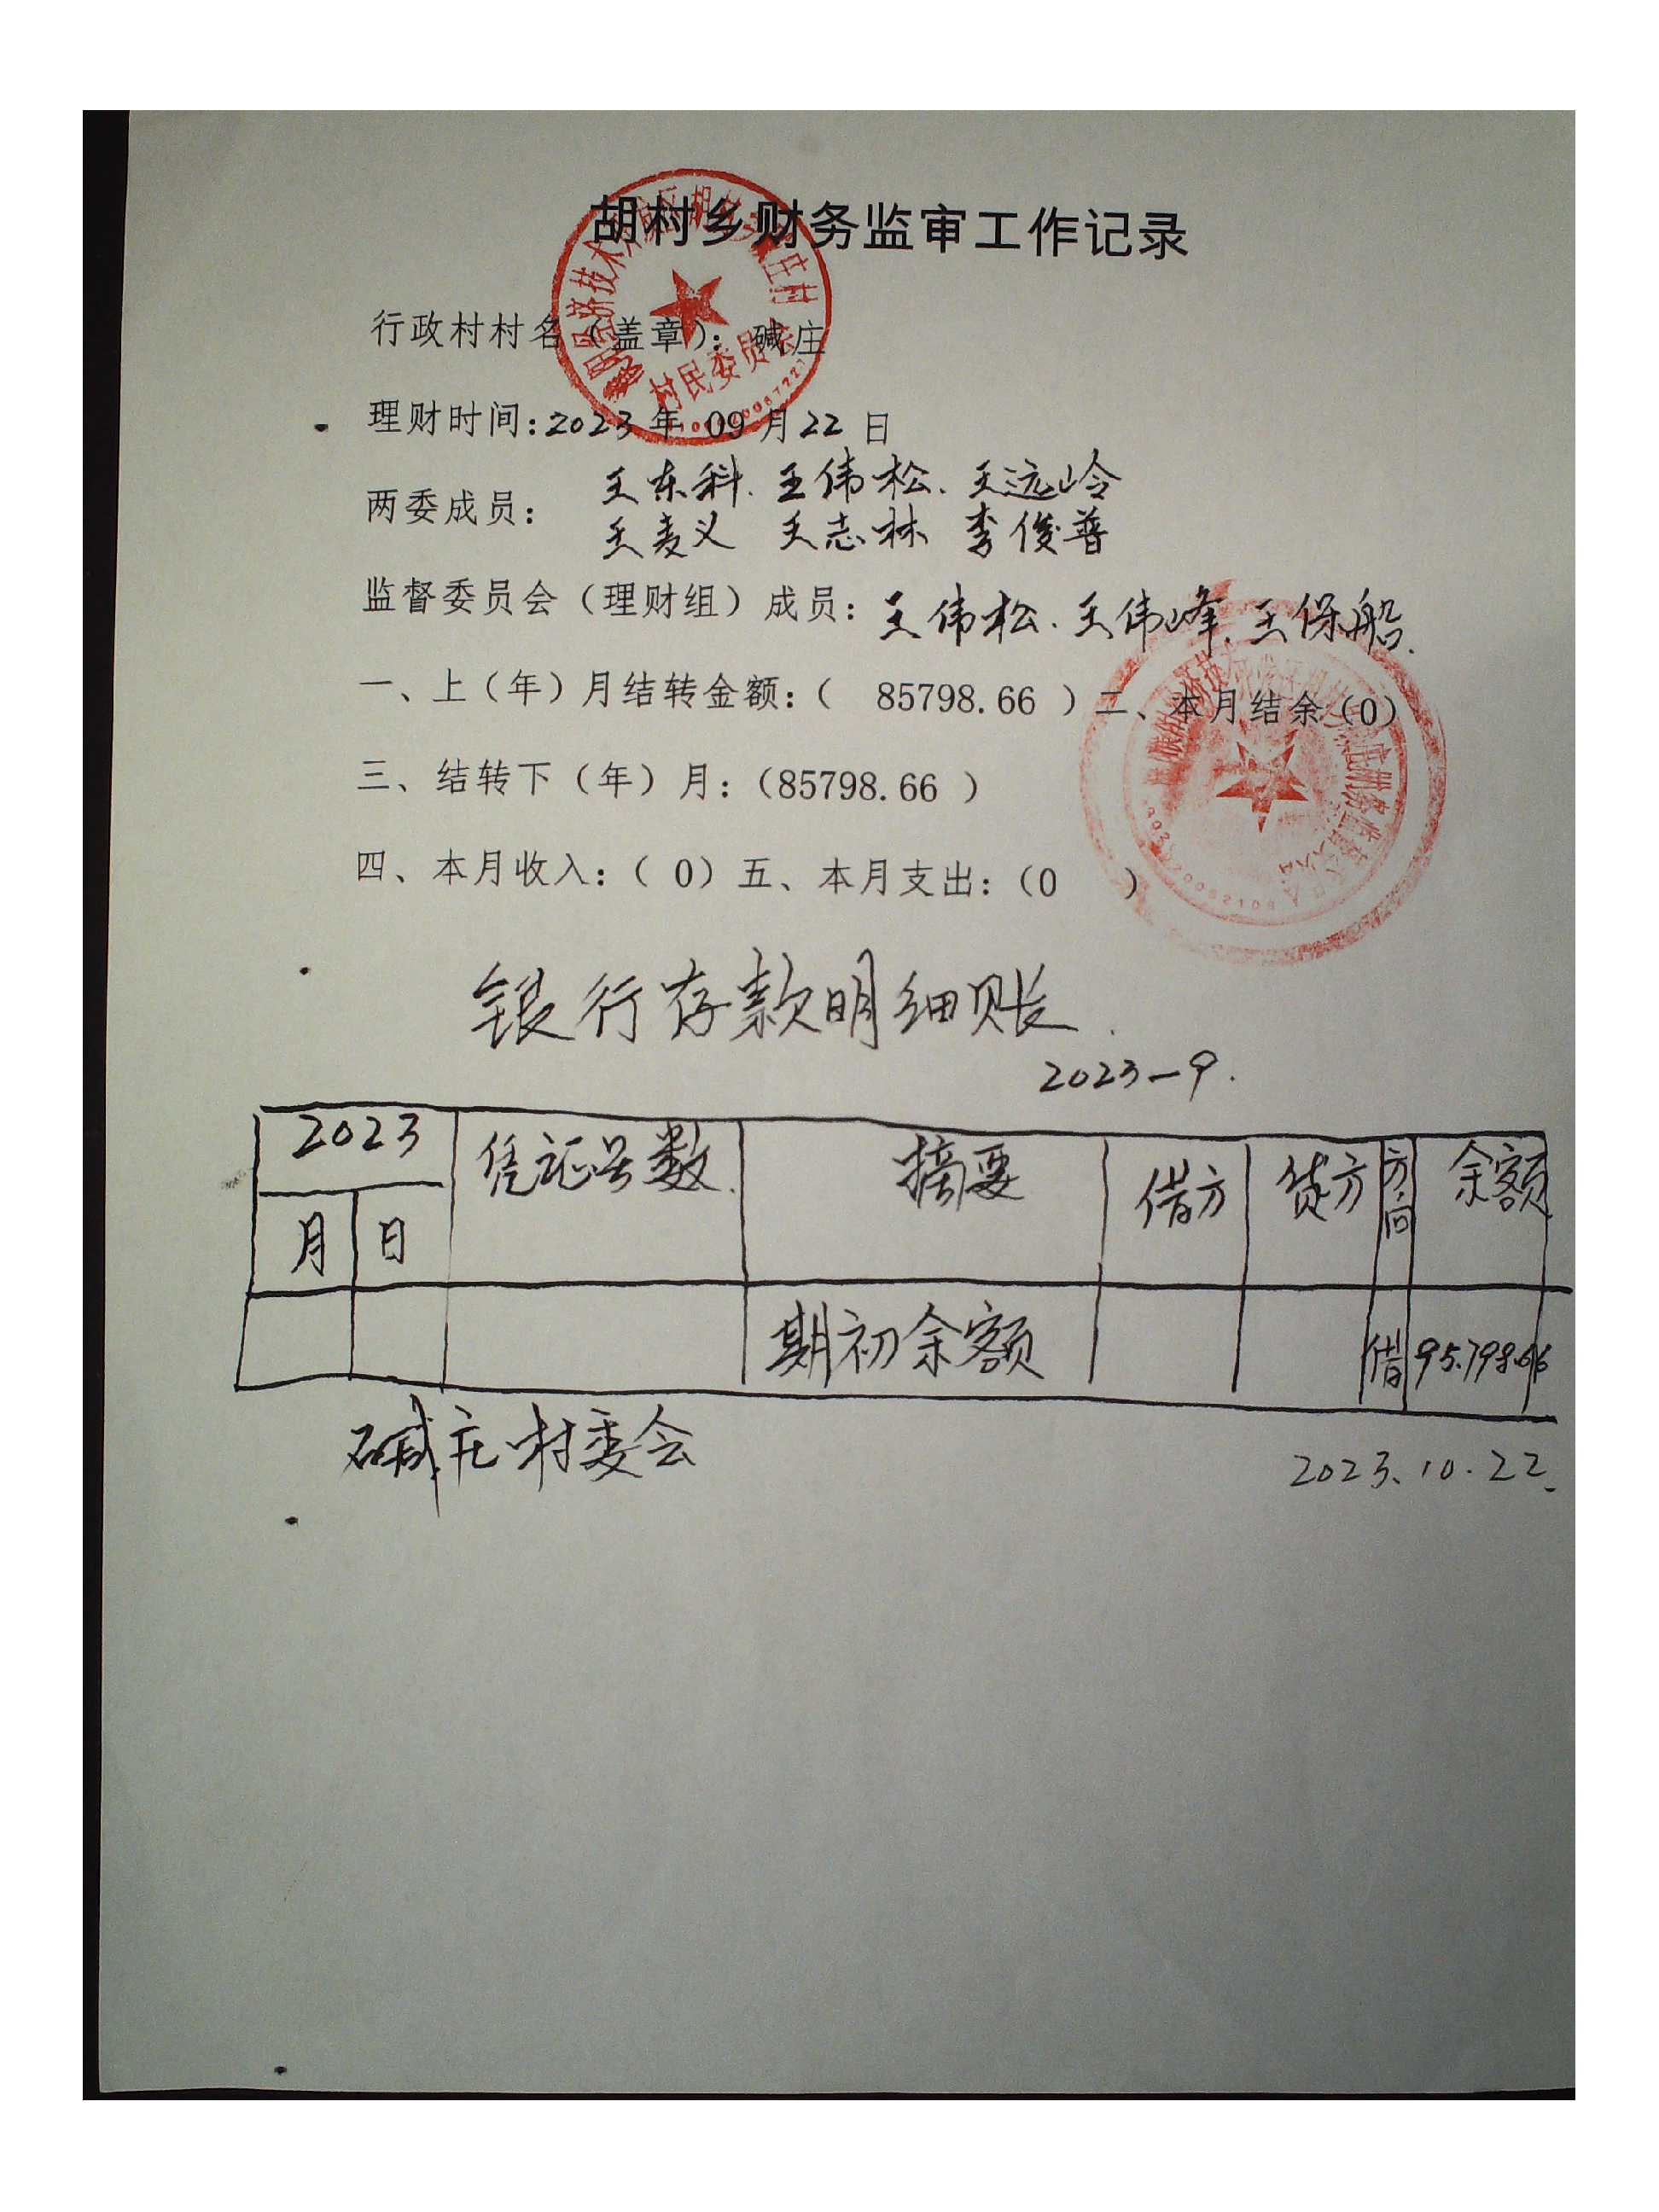 胡村乡财务监审工作记录
行政村村名（盖章）：碱庄
村民委员会
理财时间：2023年 09月22 日
两委成员： 王东科、王伟松、王远岭
王麦义 王志林 李俊普
监督委员会（理财组）成员：王伟松、王伟峰、王保船
一、上（年）月结转金额：（ 85798.66 ）二、本月结余（0）
三、结转下（年）月：（85798.66 ）
四、本月收入：（ 0）五、本月支出：（0 ）
银行存款明细账
2023-9.
2023 凭证号数 摘要 借方 贷方 方向 余额
月 日
期初余额 借 95.798.66
碱庄村委会 2023.10.22